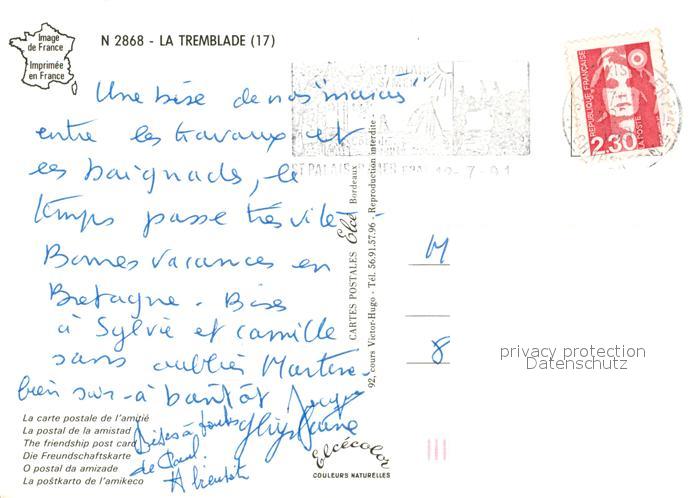 Image
de France
Imprimée
en France
N 2868 - LA TREMBLADE (17)
Une bise de nos "marais"
entre les travaux et
les baignades, le
temps passe très vite
Bonnes vacances en
Bretagne. Bises
à Sylvie et Camille
sans oublier Martine
bien sur - à bientôt
Ghyslaine
Bises à toutes
de Paul.
A bientôt
La carte postale de l'amitié
La postal de la amistad
The friendship post card
Die Freundschaftskarte
O postal da amizade
La poŝtkarto de l'amikeco
CARTES POSTALES Elcé Bordeaux
92, cours Victor-Hugo - Tél. 56.91.57.96 - Reproduction interdite -
Elcécolor
COULEURS NATURELLES
ST PALAIS MER
12-7-91
REPUBLIQUE FRANÇAISE
2.30
LA POSTE
M
8
privacy protection
Datenschutz